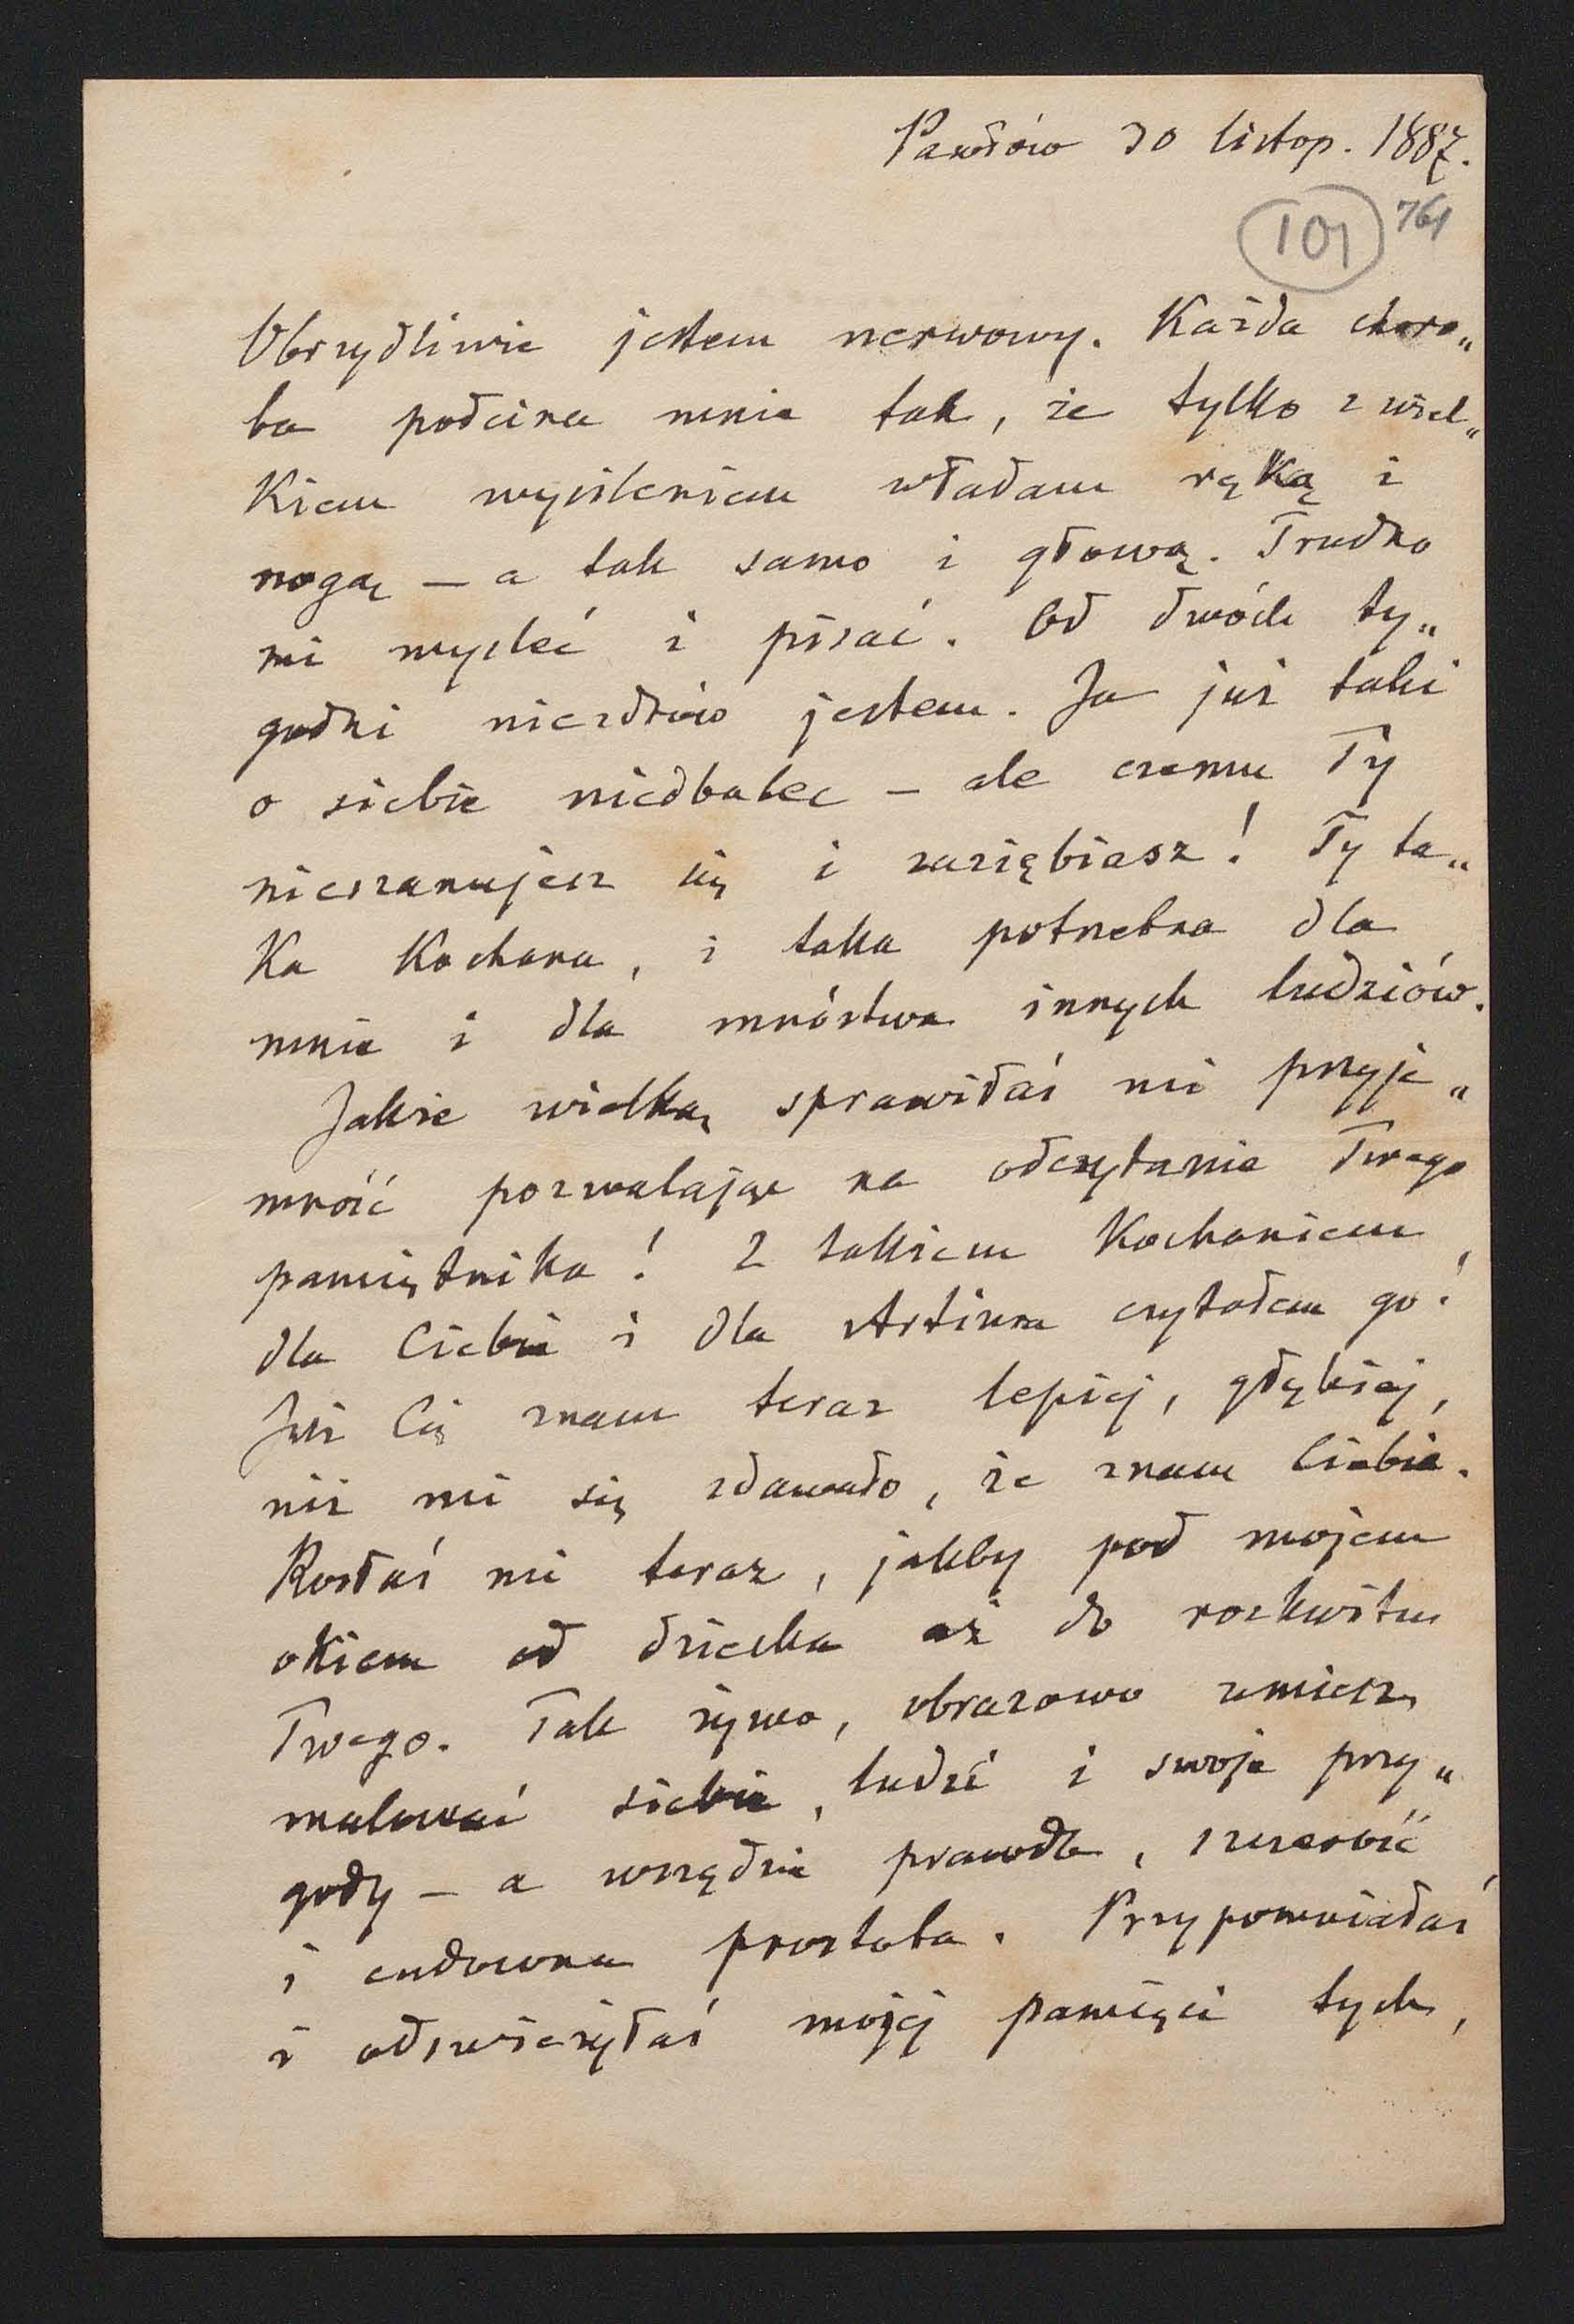 Pawłów 30 listop. 1887.
101 761
Obrzydliwie jestem nerwowy. Każda choro„
ba podcina mnie tak, że tylko z wiel„
kiem wysileniem władam ręką i
nogą — a tak samo i głową. Trudno
mi mysleć i pisać. Od dwóch ty„
godni niezdrów jestem. Ja już taki
o siebie niedbalec — ale czemu Ty
nieszanujesz się i zaziębiasz! Ty ta„
ka kochana, i taka potrzebna dla
mnie i dla mnóstwa innych ludziów.
Jakże wielką sprawiłaś mi przyje„
mność pozwalając na odczytanie Twego
pamiętnika! Z takiem kochaniem
dla Ciebie i dla Artiura czytałem go!
Już Cię znam teraz lepiej, głębiej,
niż mi się zdawało, że znam Ciebie.
Rosłaś mi teraz, jakby pod mojem
okiem od dziecka aż do rozkwitu
Twego. Tak żywo, obrazowo umiesz
malować siebie, ludzi i swoje przy„
gody — a wszędzie prawda, szczerość
i cudowna prostota. Przypomniałaś
i odświeżyłaś mojej pamięci tych,